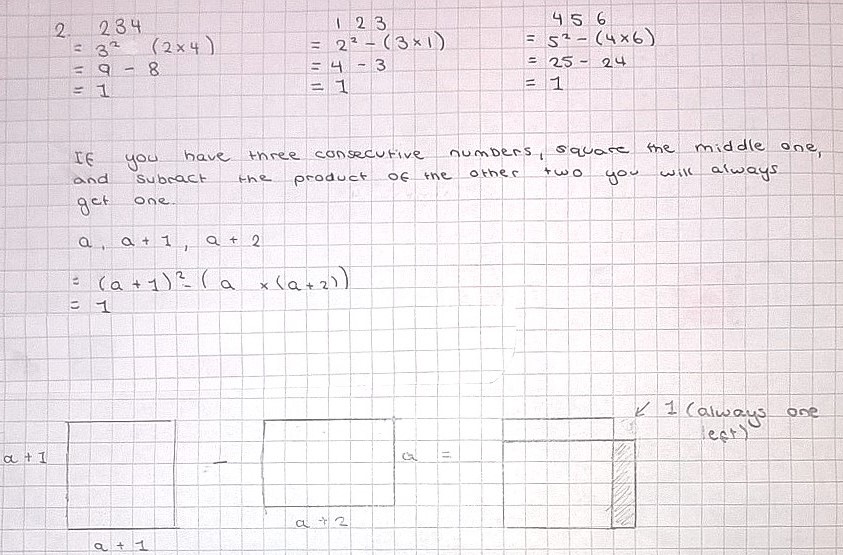 2. 2 3 4
= 3² (2×4)
= 9 - 8
= 1
1 2 3
= 2² - (3×1)
= 4 - 3
= 1
4 5 6
= 5² - (4×6)
= 25 - 24
= 1
If you have three consecutive numbers, square the middle one,
and subract the product of the other two you will always
get one.
a, a + 1, a + 2
= (a + 1)² - (a × (a+2))
= 1
↙ 1 (always one
left)
a + 1
-
a
=
a + 2
a + 1